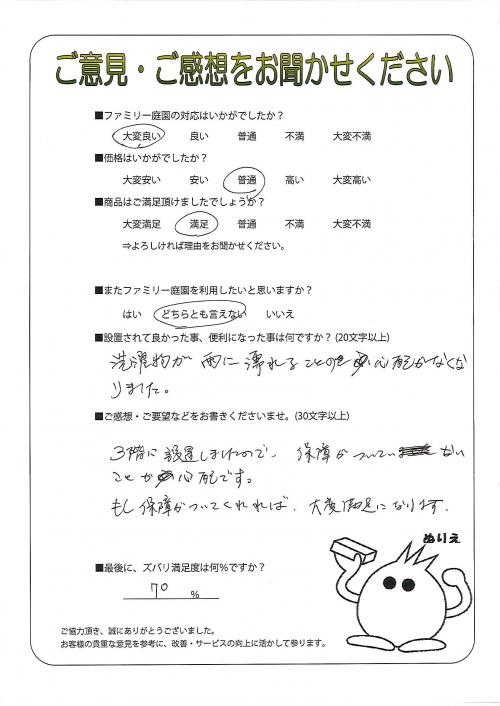 ご意見・ご感想をお聞かせください
■ファミリー庭園の対応はいかがでしたか？
大変良い 良い 普通 不満 大変不満
■価格はいかがでしたか？
大変安い 安い 普通 高い 大変高い
■商品はご満足頂けましたでしょうか？
大変満足 満足 普通 不満 大変不満
⇒よろしければ理由をお聞かせください。
■またファミリー庭園を利用したいと思いますか？
はい どちらとも言えない いいえ
■設置されて良かった事、便利になった事は何ですか？(20文字以上)
洗濯物が雨に濡れることの心配がなくな
りました。
■ご感想・ご要望などをお書きくださいませ。(30文字以上)
3階に設置しましたので、保障がついていない
ことが心配です。
もし保障がついてくれれば、大変満足になります。
ぬりえ
■最後に、ズバリ満足度は何％ですか？
70 %
ご協力頂き、誠にありがとうございました。
お客様の貴重な意見を参考に、改善・サービスの向上に活かして参ります。